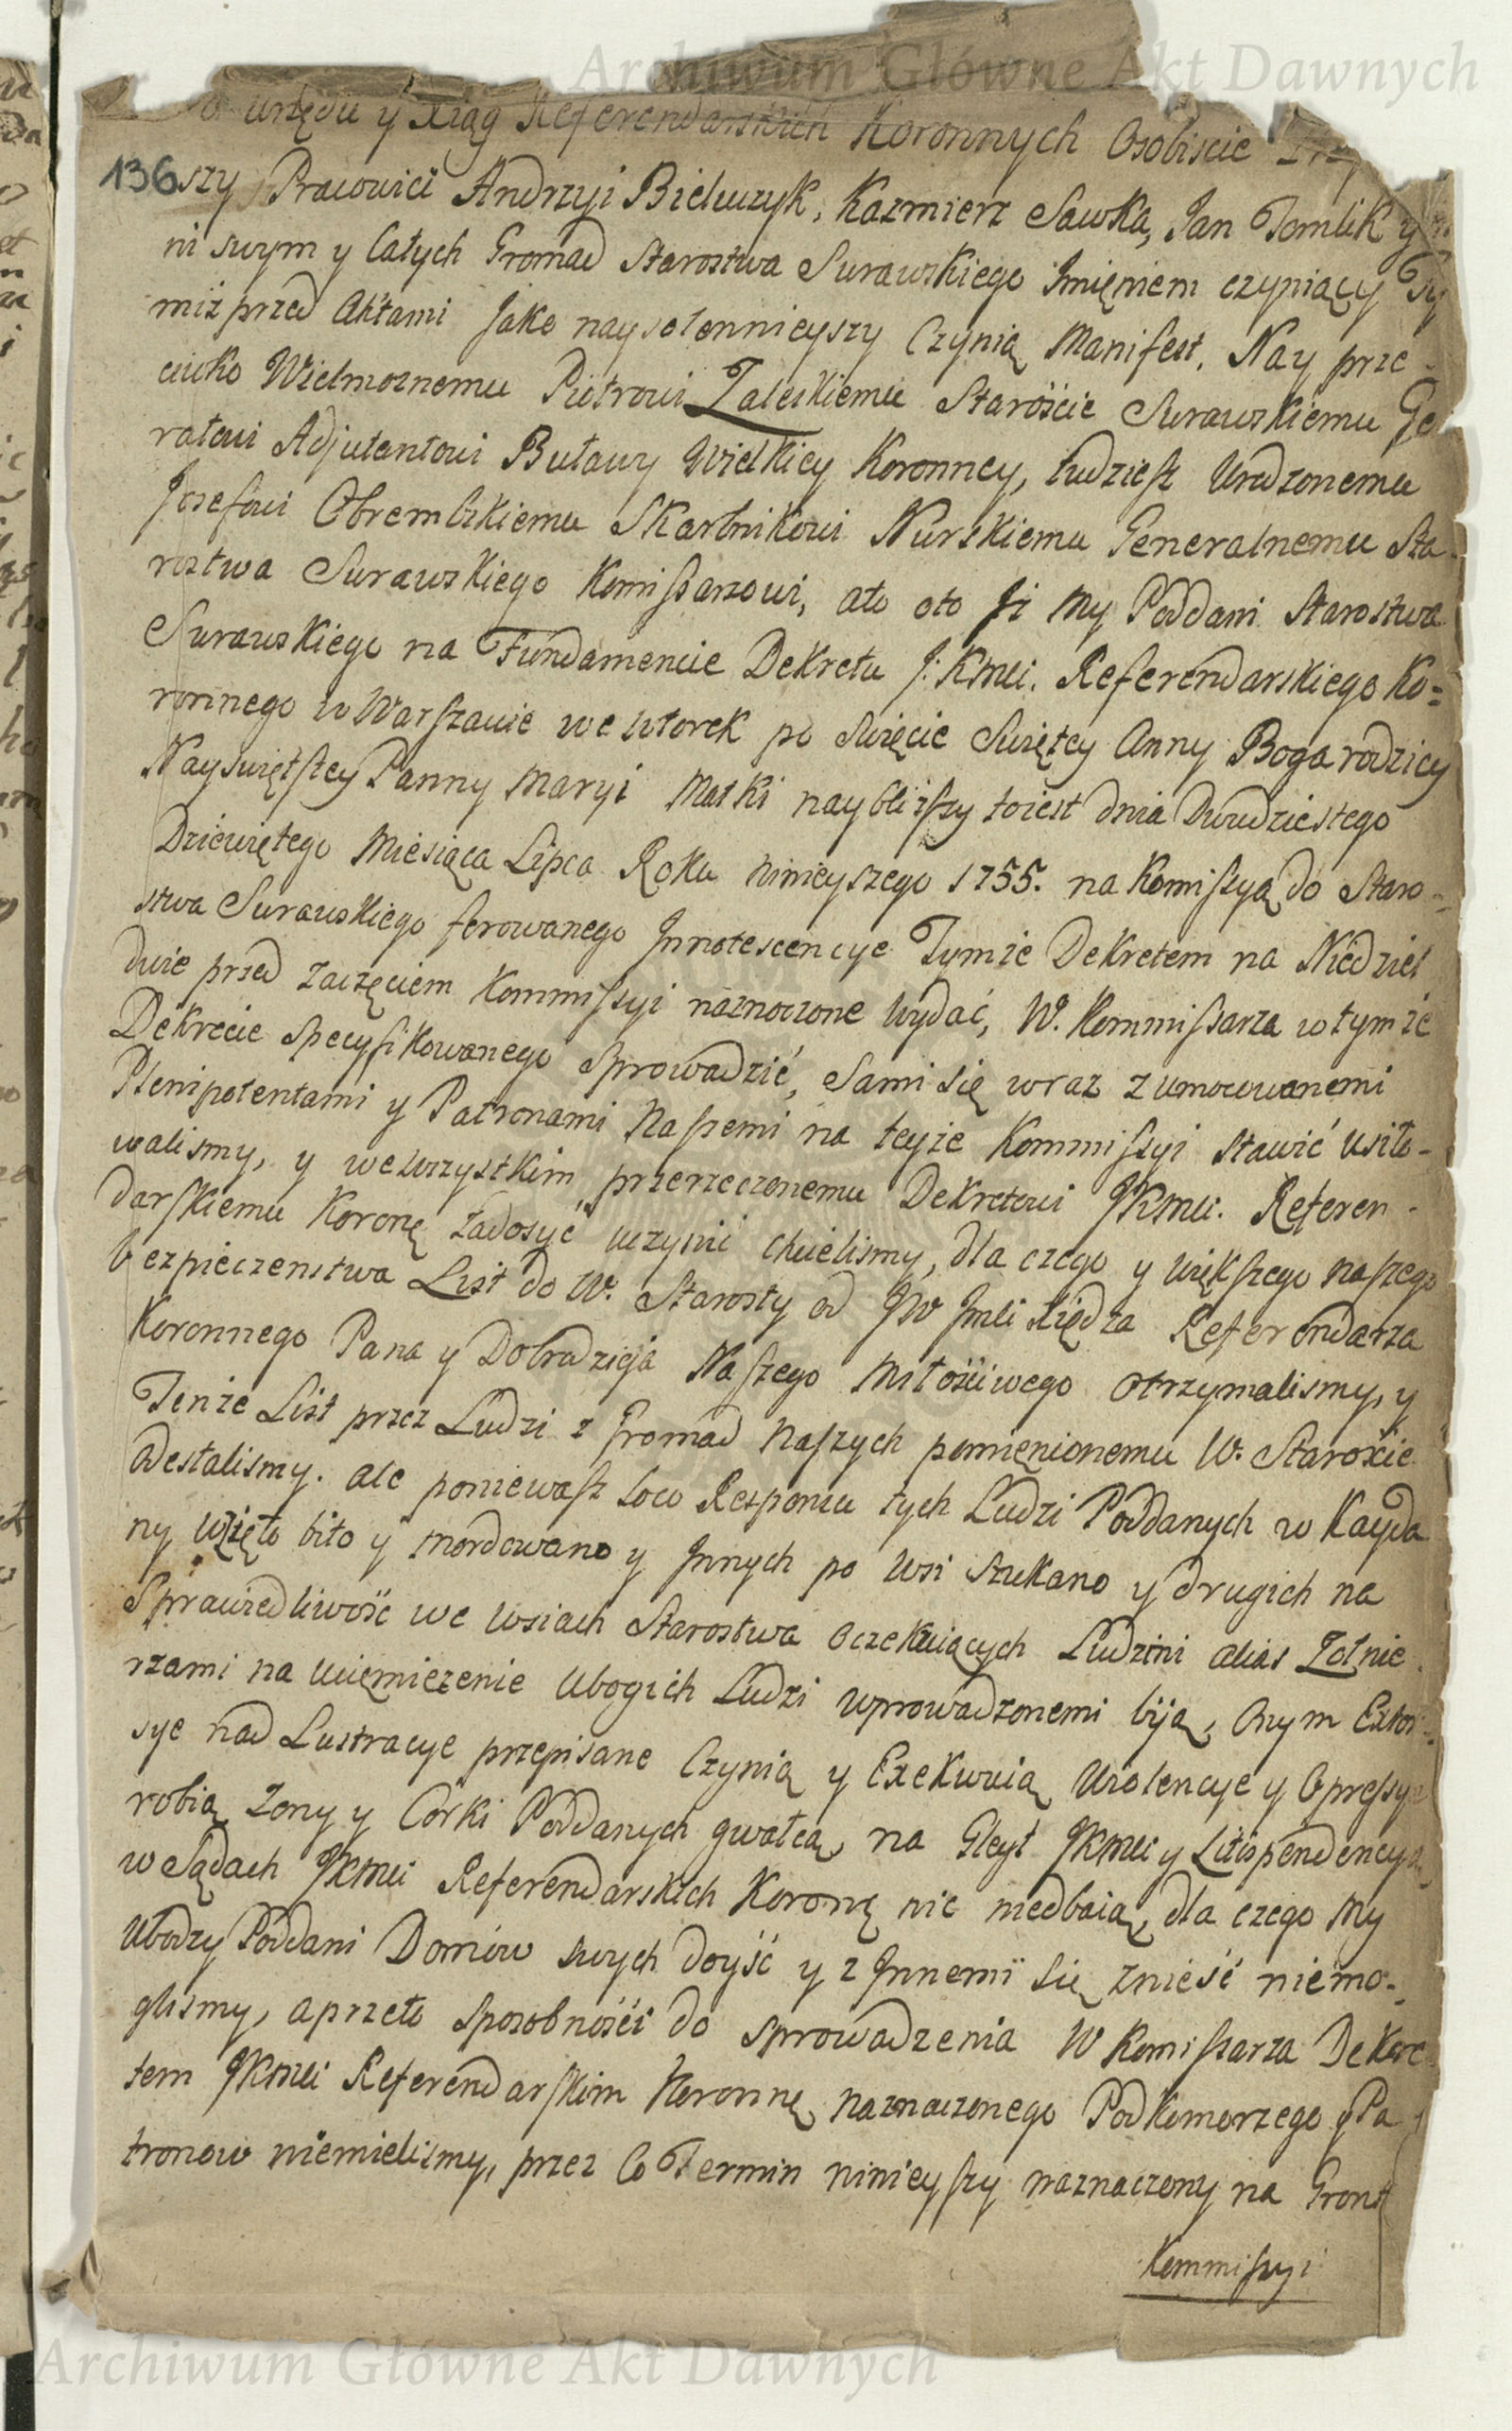 Archiwum Główne Akt Dawnych
urzędu y Xiąg Referendarskich Koronnych Osobiscie
136
szy Pracowici Andrzyi Bielwzyk, Kazmierz Sawka, Jan Tomlik y
ni swym y Całych Gromad Starostwa Surawskiego Jmięniem czyniący Ty
miż przed Aktami Jako naysolennieyszy Czynią Manifest. Nay prze-
ciwko Wielmoznemu Piotrowi Zaleskiemu Starościе Surawskiemu Ge
rałowi Adjutantowi Buławy Wielkiey Koronney, tudziesz Urodzonemu
Jozefowi Obrembskiemu Skarbnikowi Nurskiemu Generalnemu Sta-
rostwa Surawskiego Komissarzowi, ato oto Jż my Poddani Starostwa
Surawskiego na Fundamencie Dekretu J: Kmci. Referendarskiego Ko=
ronnego w Warszawie we wtorek po Swięcie Swiętey Anny Boga rodzicy
Nayswiętszey Panny Maryi Matki nayblizszy toiest dnia Dwudziestego
Dziewiętego Miesiąca Lipca Roku ninieyszego 1755. na Komissyą do Staro-
stwa Surawskiego ferowanego Jnnotescencye Tymze Dekretem na Niedziel
dwie przed zaczęciem Kommissyi naznaczone wydać, W. Kommissarza w tymze
Dekrecie specyfikowanego sprowadzić, Sami się wraz z umocowanemi
Plenipotentami y Patronami Naszemi na teyze Kommissyi stawić usiło-
walismy, y wewszystkim przerzeczonemu Dekretowi JKmci. Referen-
darskiemu Koronę zadosyć uczynić chcielismy, dla czego y większego naszego
bezpieczenstwa List do W. Starosty od JW Jmci Xiędza Referendarza
Koronnego Pana y Dobrodzieja Naszego Miłościwego otrzymalismy, y
Tenze List przez Ludzi z Gromad Naszych pomienionemu W. Starościе
odestalismy. ale poniewasz loco Responsu tych Ludzi Poddanych w Kayda
ny wzięto bito y mordowano y Jnnych po wsi szukano y drugich na
Sprawiedliwość we wsiach Starostwa oczekuiących Ludzmi alias Zołnie
rzami na uciemięzenie Ubogich Ludzi wprowadzonemi biją, Onym Extor-
sye nad Lustracye przepisane Czynią y Exekwuią Uiolencye y Opressye
robią Zony y Córki Poddanych gwałcą, na Gleyt JKmci y Litispendencyą
w Sądach JKmci Referendarskich Koronę nic niedbaią, dla czego My
Ubodzy Poddani Domów swych doyść y z Jnnemi się znieść niemo-
glismy, aprzeto sposobności do sprowadzenia W Komissarza Dekre
tem JKmci Referendarskim Koronnę naznaczonego Podkomorzego y Pa
tronow niemielismy, przez Co Termin ninieyszy naznaczony na Gront
Kommissyi
Archiwum Główne Akt Dawnych